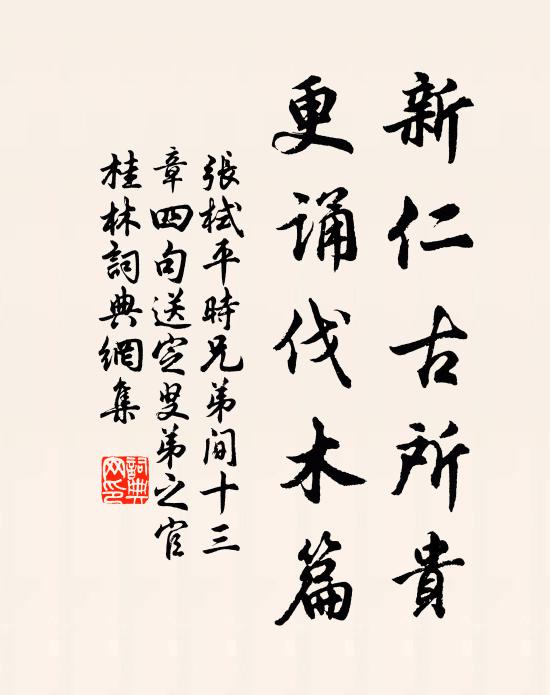 新仁古所貴
更誦伐木篇
張栻平時兄弟間十三
章四句送定叟弟之官
桂林詞典網集
詞典网印